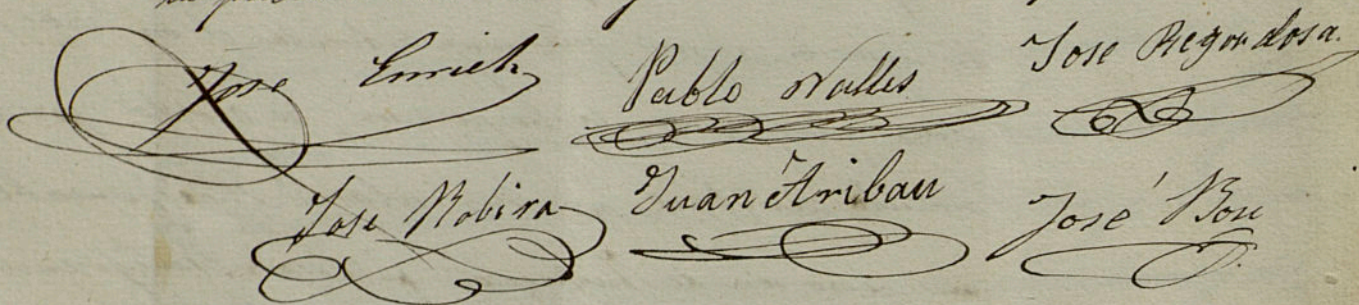 Jose Enrich Pablo Valles Jose Regordosa.
Jose Robira Juan Aribau José Bou